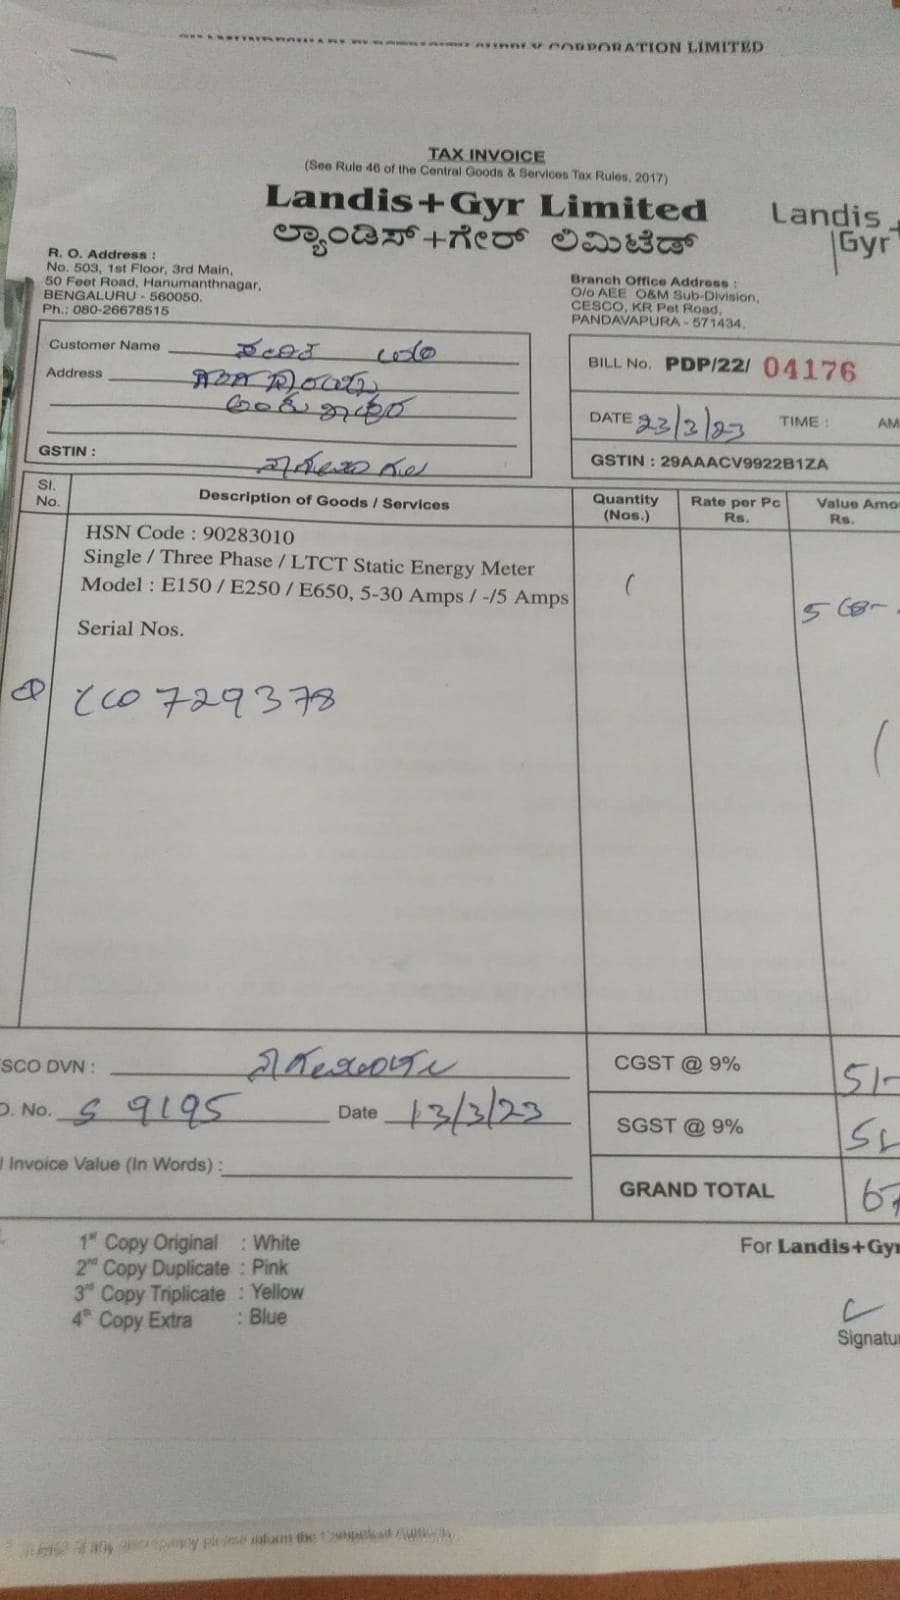 SUPPLY CORPORATION LIMITED
TAX INVOICE
(See Rule 46 of the Central Goods & Services Tax Rules, 2017)
Landis+Gyr Limited
ಲ್ಯಾಂಡಿಸ್+ಗೇರ್ ಲಿಮಿಟೆಡ್
Landis+
Gyr
R. O. Address :
No. 503, 1st Floor, 3rd Main,
50 Feet Road, Hanumanthnagar,
BENGALURU - 560050.
Ph.: 080-26678515
Branch Office Address :
O/o AEE O&M Sub-Division,
CESCO, KR Pet Road,
PANDAVAPURA - 571434.
Customer Name
Address
GSTIN :
BILL No. PDP/22/ 04176
DATE 23/3/23 TIME : AM
GSTIN : 29AAACV9922B1ZA
Sl. No. Description of Goods / Services Quantity (Nos.) Rate per Pc Rs. Value Amo Rs.
HSN Code : 90283010
Single / Three Phase / LTCT Static Energy Meter
Model : E150 / E250 / E650, 5-30 Amps / -/5 Amps
Serial Nos.
729378
SCO DVN :
CGST @ 9% 51-
O. No. S 9195 Date 13/3/23
SGST @ 9%
Invoice Value (In Words) :
GRAND TOTAL
1st Copy Original : White
2nd Copy Duplicate : Pink
3rd Copy Triplicate : Yellow
4th Copy Extra : Blue
For Landis+Gyr
Signatu
any discrepancy please inform the